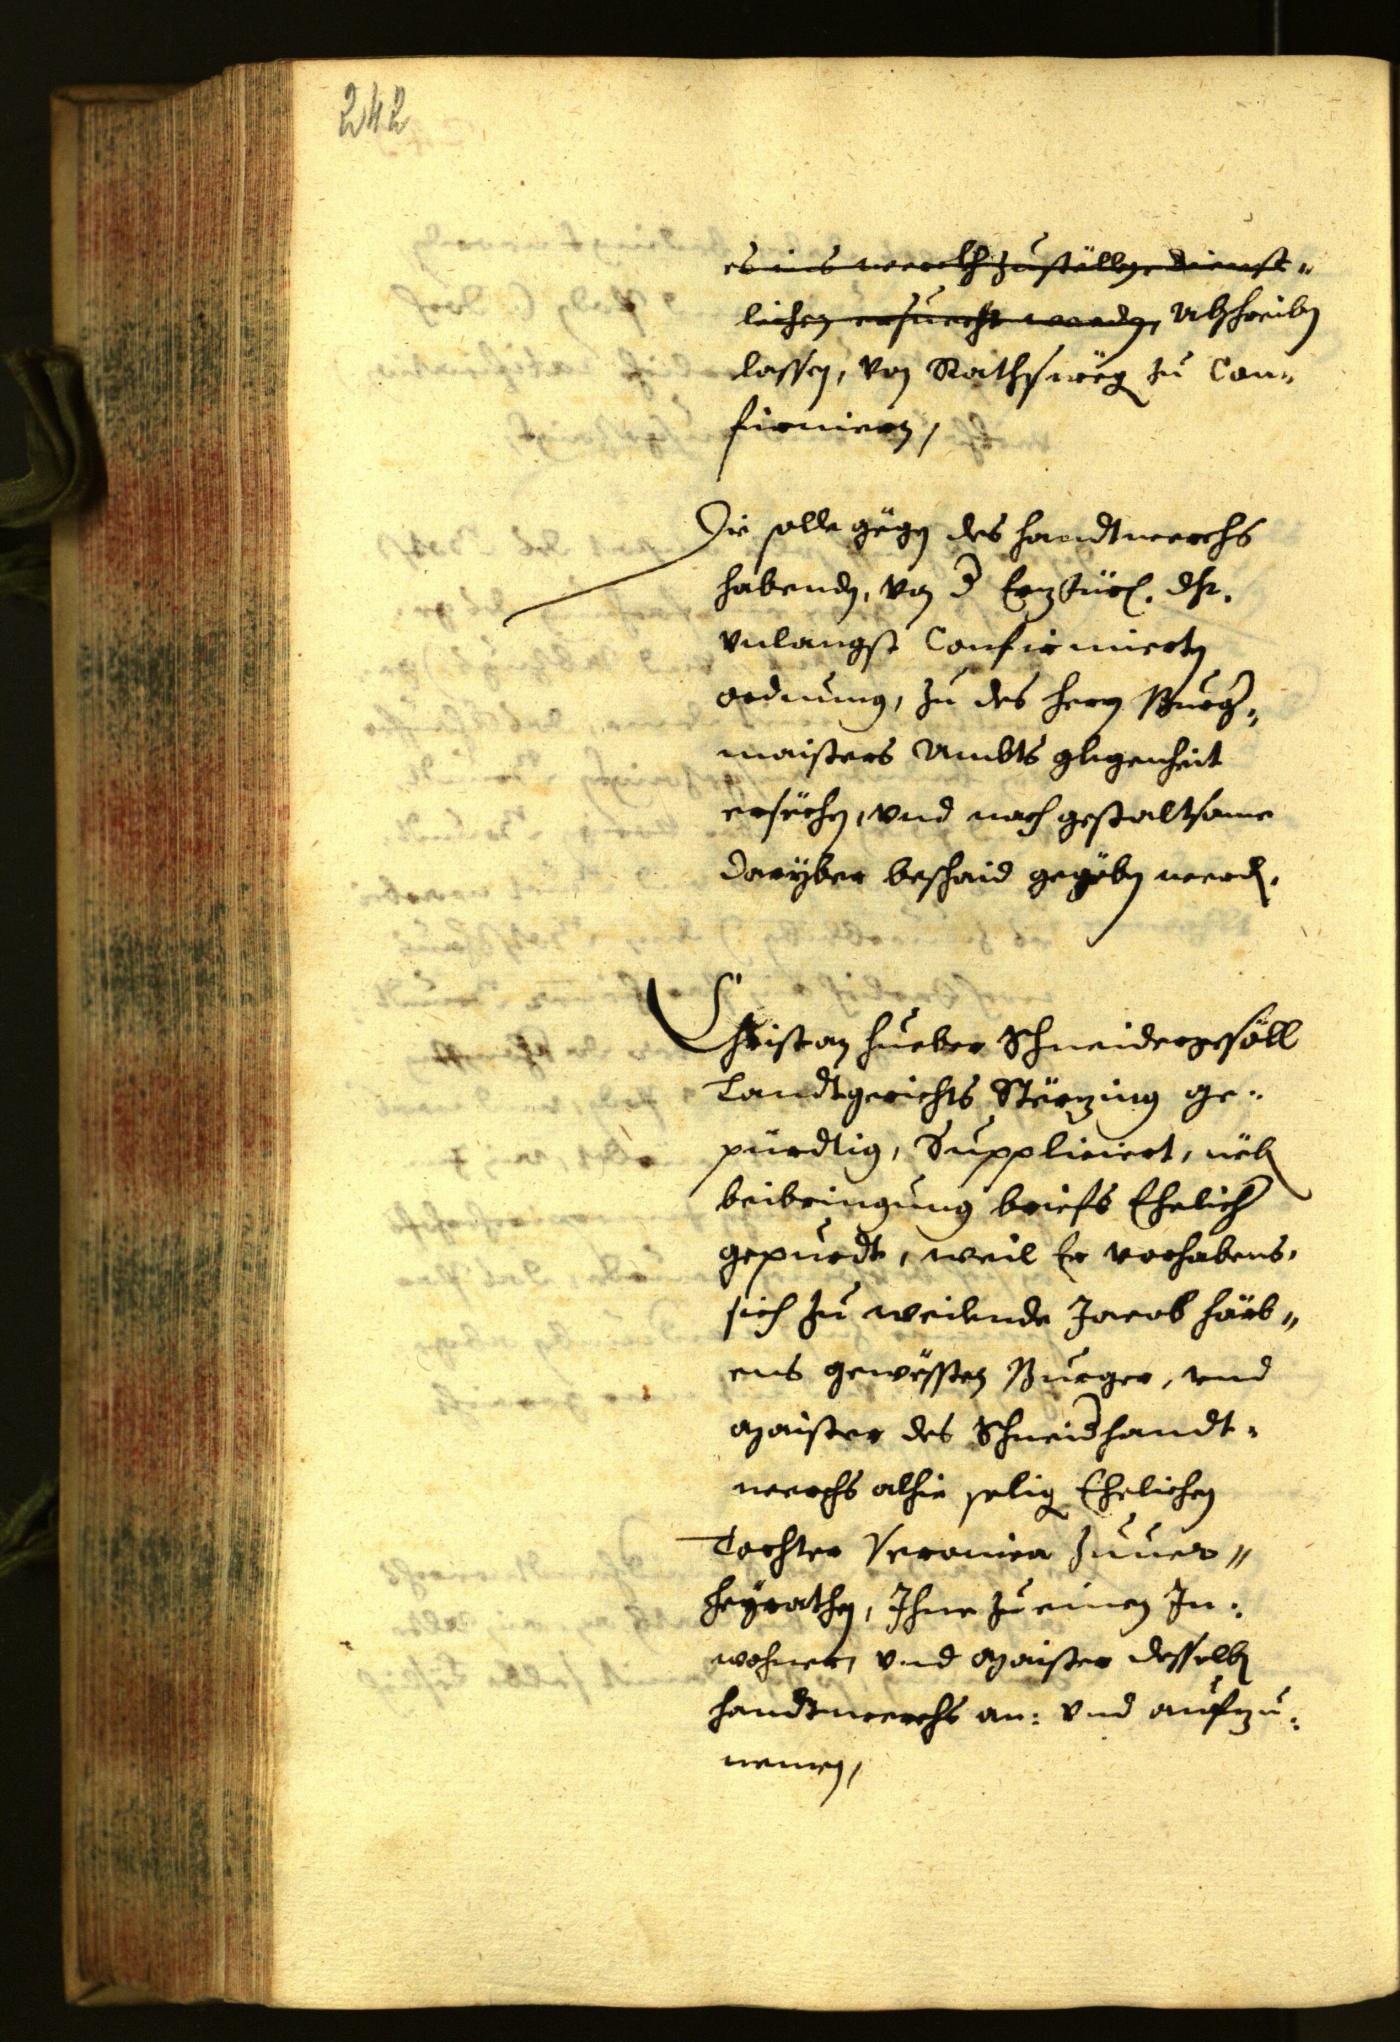 242
es ins werckh zustöllen dienst-
lichen ersuecht worden, Abschreiben
lassen, von Rathswög zu Con-
firmiern,
Die solle gögen des handtwerchs
habenden, von d Erzfürl. dhr.
vnlangst Confirmierten
ordnung, zu des herrn Burg-
maisters Ambts glegenheit
ersöchen, vnd nach gestaltsame
darüber beschaid gegöben werd.
Christan hueber Schneidergesöll
Landtgerichts Störzing ge-
pürdtig, Suppliciert, nöb
beibringung briefs Ehelich
gepurdt, weil Er vorhabens,
sich zu weilende Jacob härb-
ens gewösten Burger, vnd
Maister des Schneidhandt-
werchs alhie selig Ehelichen
Tochter Veronica zuuer-
heyrathen, Ihne zu einen In-
wohner, vnd Maister desselb
handtwerchs an: vnd aufzu-
nemen,